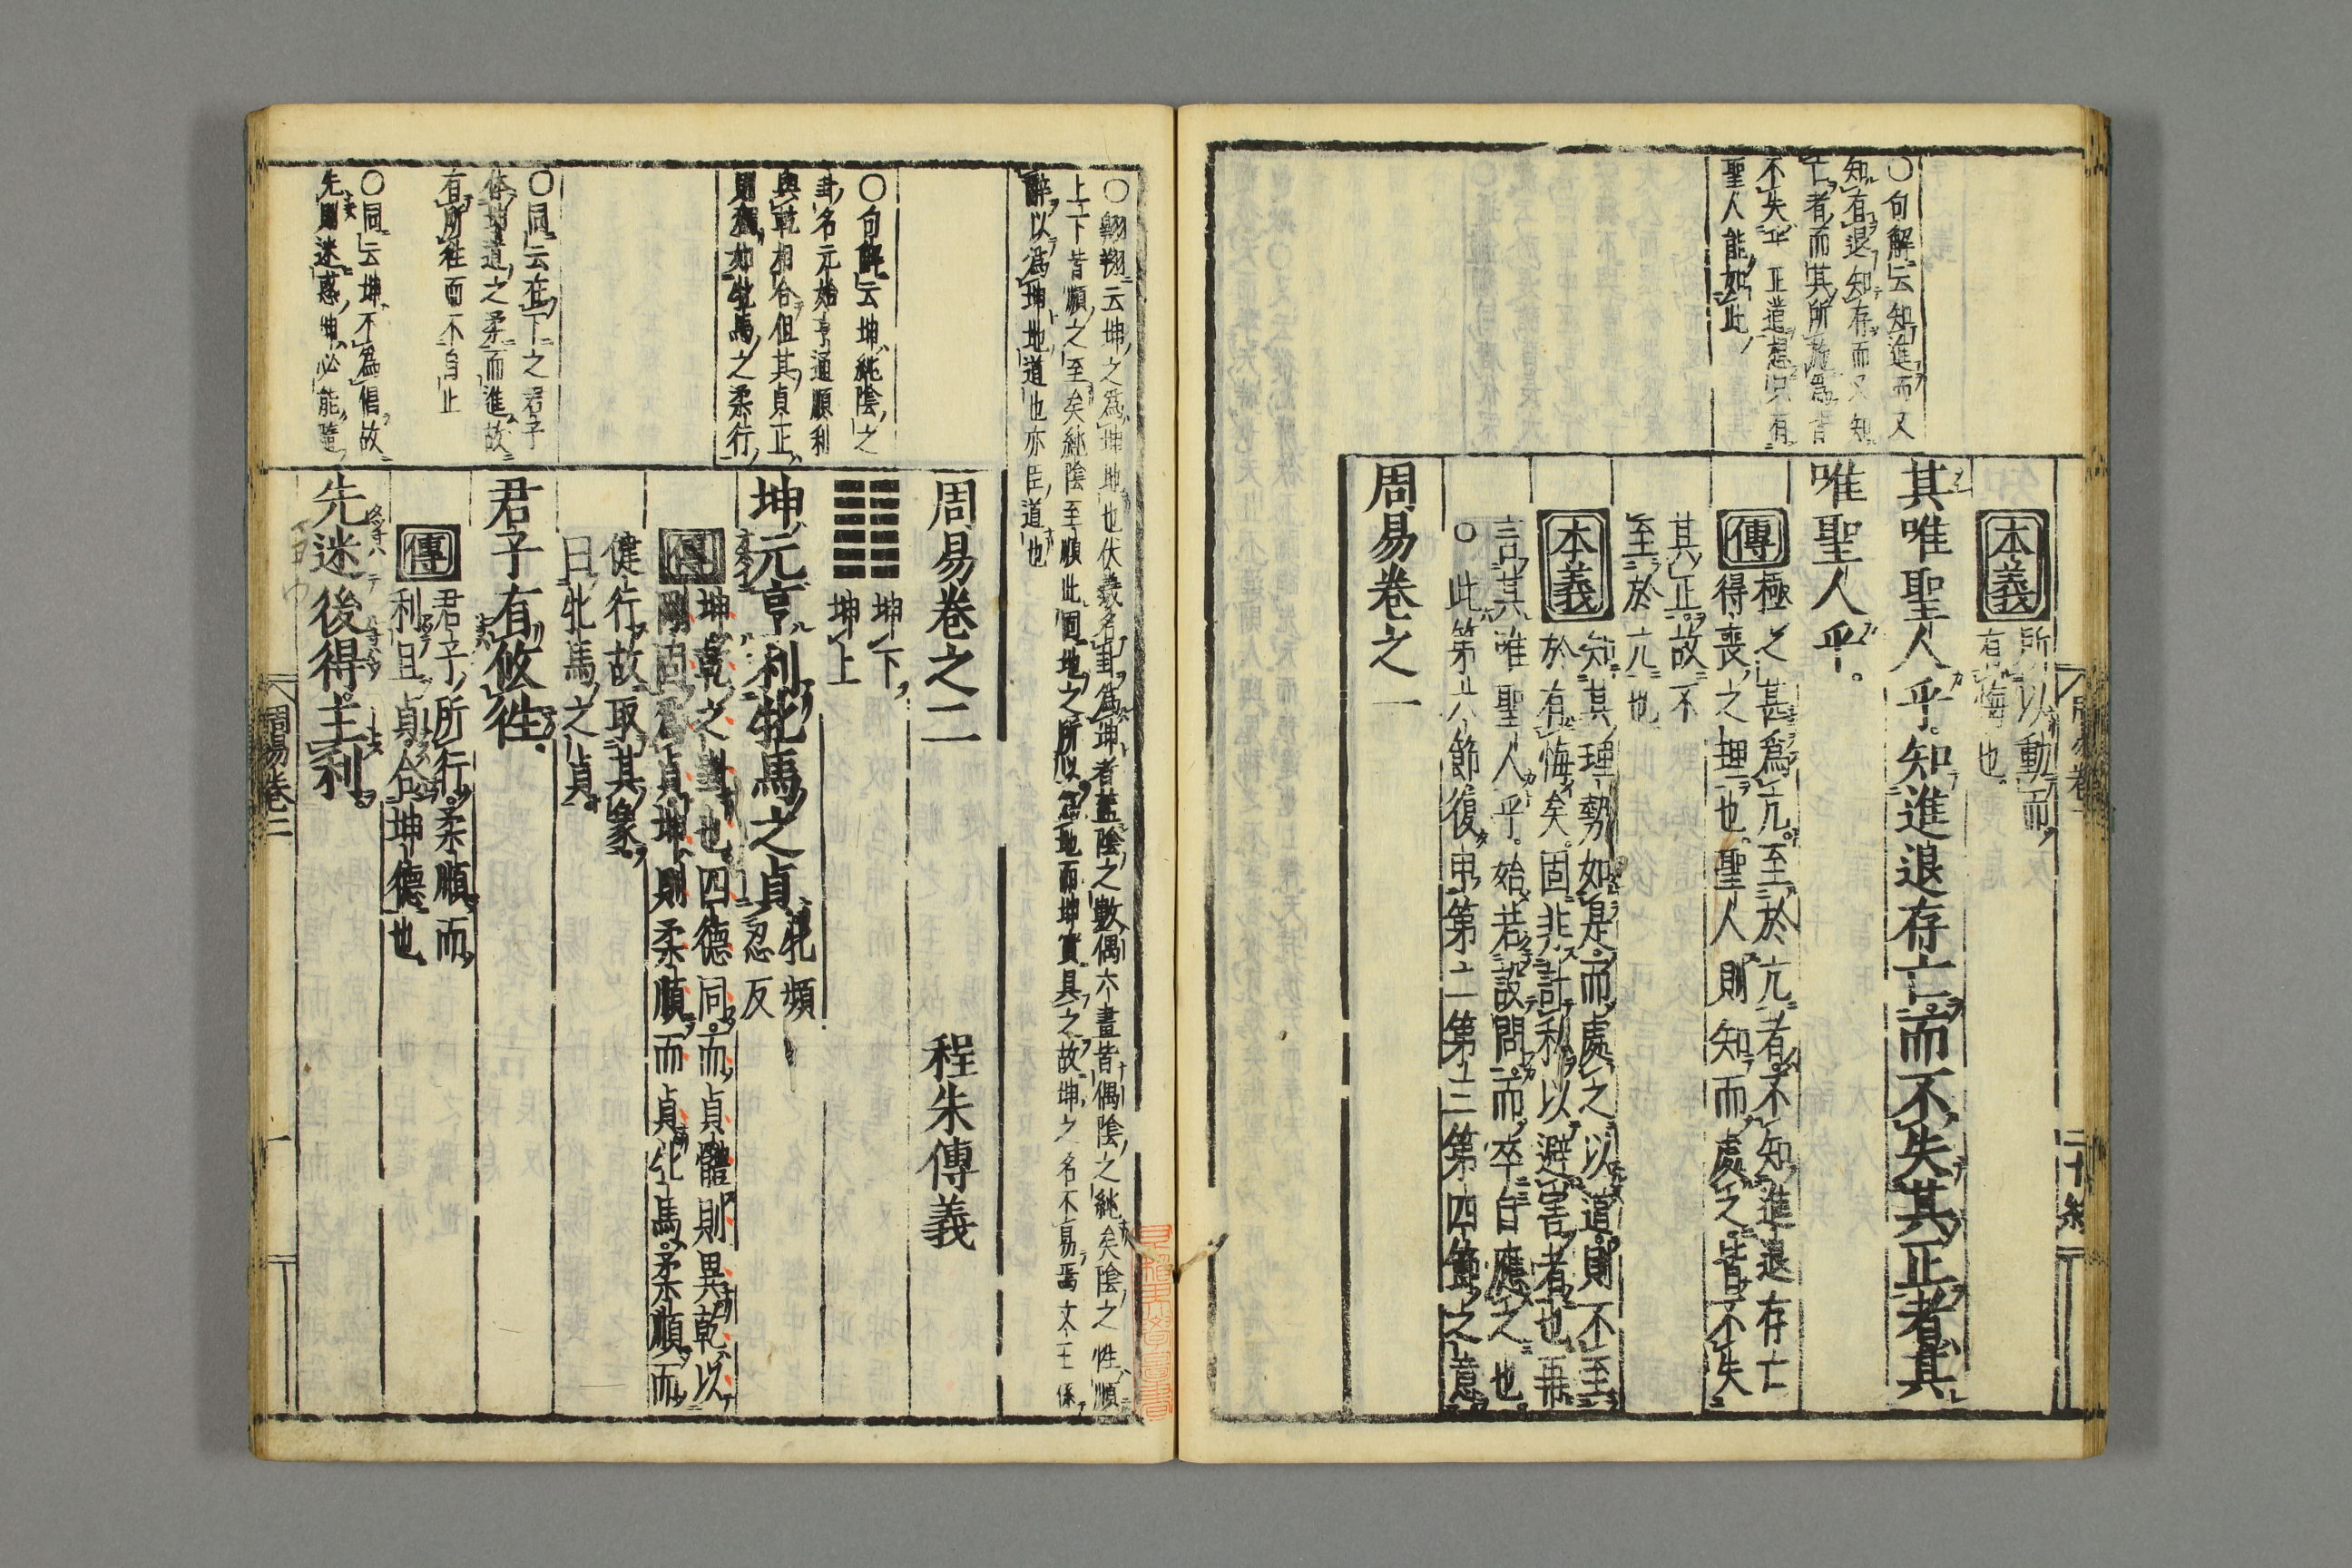 本義
所以動而
有悔也
其唯聖人乎。知進退存亡。而不失其正者。其
唯聖人乎。
傳
極之甚爲亢。至於亢者。不知進退存亡
得喪之理也。聖人則知而處之。皆不失
其正。故不
至於亢也
本義
知其理勢如是。而處之以道。則不至
於有悔矣。固非計私以避害者也。再
言其唯聖人乎。始若設問。而卒自應之也。
○此第六節復申第二第三第四節之意
周易卷之一
○句解云知進而又
知有退知存而又知
亡者而其所施爲皆
不失乎正道想只有
聖人能如此
○翱翔云坤之爲坤地也伏羲名卦爲坤者蓋陰之數偶六畫皆偶陰之純矣陰之性順
上下皆順之至矣純陰至順此固地之所以爲地而坤實具之故坤之名不易焉文王係
辭以爲坤地道也亦臣道也
周易卷之二
程朱傳義
坤下
坤上
坤元亨利牝馬之貞
牝頻
忍反
傳
坤乾之對也。四德同。而貞體則異。乾以
剛固爲貞。坤則柔順而貞。牝馬柔順而
健行。故取其象。
曰牝馬之貞
君子有攸往。
傳
君子所行。柔順而
利且貞。合坤德也
先迷後得主利。
○句解云坤純陰之
卦名元始亨通順利
與乾相合但其貞正
則猶如牝馬之柔行
○同云在下之君子
体坤道之柔而進故
有所往而不自止
○同云坤不爲倡故
先則迷惑坤必能隨
周易卷二
一